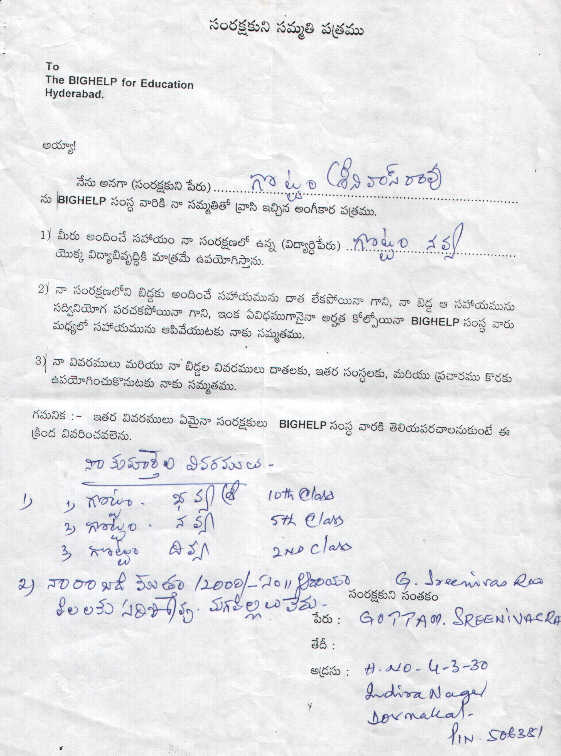 సంరక్షకుని సమ్మతి పత్రము
To
The BIGHELP for Education
Hyderabad.
అయ్యా!
నేను అనగా (సంరక్షకుని పేరు) గొట్టం శ్రీనివాస్ రావు
ను BIGHELP సంస్థ వారికి నా సమ్మతితో వ్రాసి ఇచ్చిన అంగీకార పత్రము.
1) మీరు అందించే సహాయం నా సంరక్షణలో ఉన్న (విద్యార్థిపేరు) గొట్టం నవ్య
యొక్క విద్యాభివృద్ధికి మాత్రమే ఉపయోగిస్తాను.
2) నా సంరక్షణలోని బిడ్డకు అందించే సహాయమును దాత లేకపోయినా గాని, నా బిడ్డ ఆ సహాయమును
సద్వినియోగ పరచకపోయినా గాని, ఇంక ఏవిధముగానైనా అర్హత కోల్పోయినా BIGHELP సంస్థ వారు
మధ్యలో సహాయమును ఆపివేయుటకు నాకు సమ్మతము.
3) నా వివరములు మరియు నా బిడ్డల వివరములు దాతలకు, ఇతర సంస్థలకు, మరియు ప్రచారము కొరకు
ఉపయోగించుకొనుటకు నాకు సమ్మతము.
గమనిక :- ఇతర వివరములు ఏమైనా సంరక్షకులు BIGHELP సంస్థ వారికి తెలియపరచాలనుకుంటే ఈ
క్రింద వివరించవలెను.
నా కుమార్తెల వివరములు -
1) 1) గొట్టం. భవ్య శ్రీ 10th Class
2) గొట్టం. నవ్య 5th Class
3) గొట్టం దివ్య 2ND Class
2) నా 12000/-
G. Sreenivas Rao
మగపిల్లలు లేరు.
సంరక్షకుని సంతకం
పేరు : GOTTAM. SREENIVASRA
తేదీ :
అడ్రసు : H.NO-4-3-30
Indira Nagar
Dornakal-
PIN. 506381